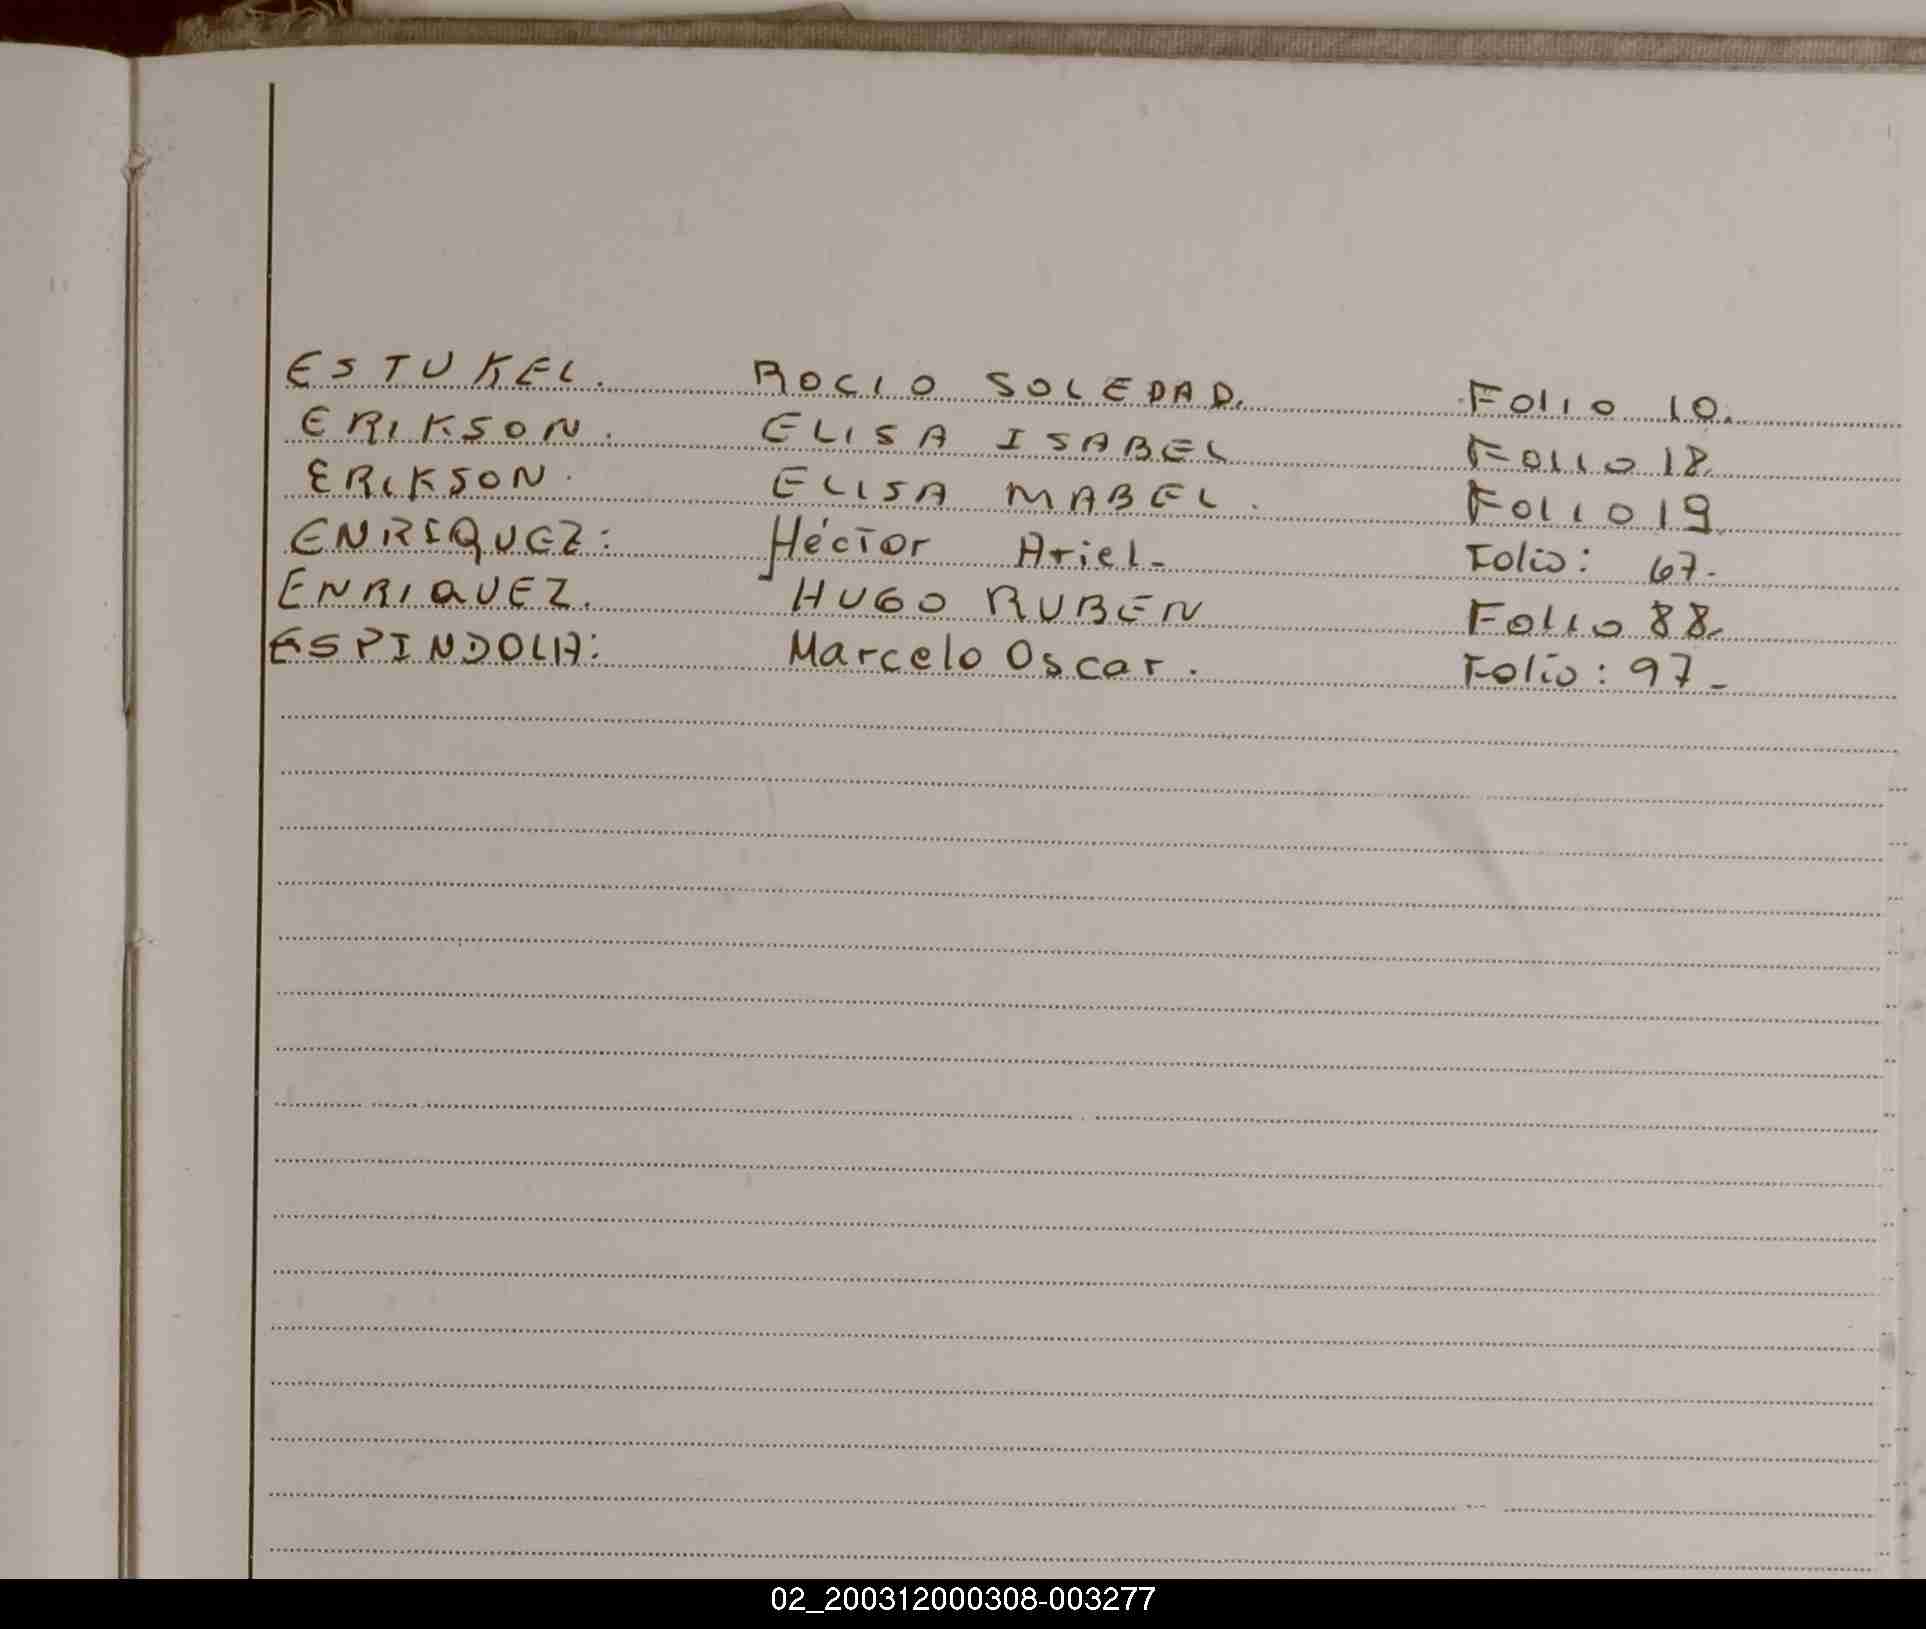 ESTUKEL. ROCIO SOLEDAD. Folio 10.
ERIKSON. ELISA ISABEL Folio 18.
ERIKSON. ELISA MABEL. Folio 19.
ENRIQUEZ: Héctor Ariel- Folio: 67-
ENRIQUEZ. HUGO RUBEN Folio 88.
ESPINDOLA: Marcelo Oscar. Folio: 97-
02_200312000308-003277